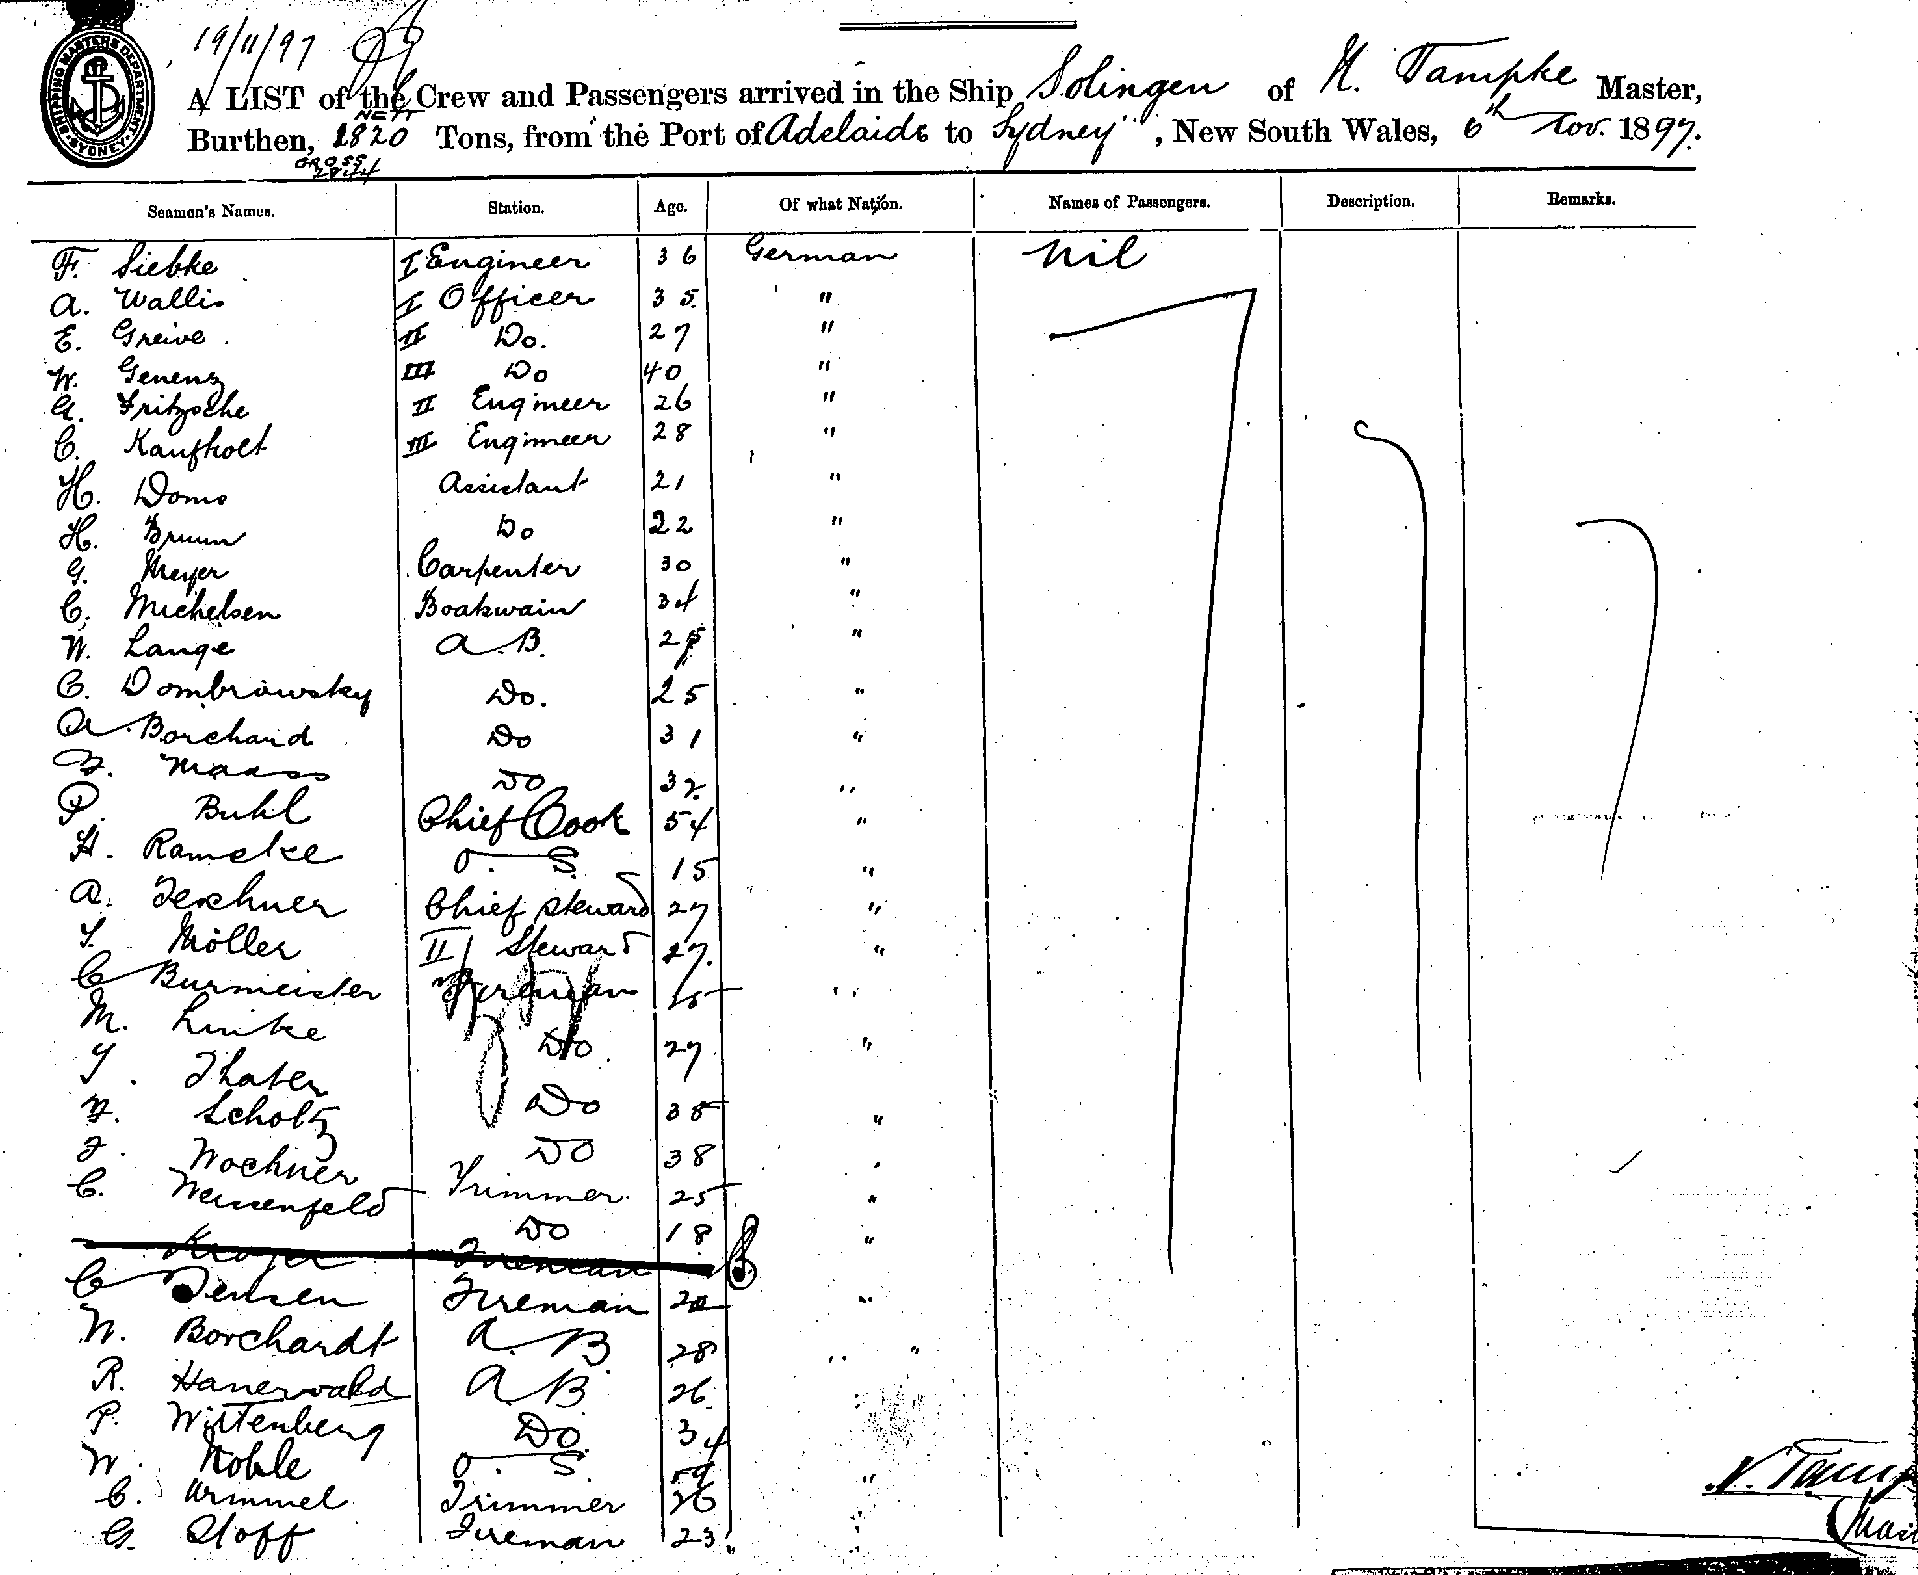 19/11/97
SHIPPING MASTERS DEPARTMENT SYDNEY
A LIST of the Crew and Passengers arrived in the Ship Solingen of H. Tampke Master,
Burthen, NETT 1820 Tons, from the Port of Adelaide to Sydney, New South Wales, 6th Nov. 1897.
GROSS
Seamen's Names. Station. Age. Of what Nation. Names of Passengers. Description. Remarks.
F. Siebke I Engineer 36 German Nil
A. Wallis I Officer 35 "
E. Greive II Do. 27 "
W. Genenz III Do 40 "
G. Fritzsche II Engineer 26 "
C. Kaufholt III Engineer 28 "
H. Doms Assistant 21 "
H. Bruun Do 22 "
G. Meyer Carpenter 30 "
C. Michelsen Boatswain 34 "
W. Lange A.B. 25 "
C. Dombrowsky Do. 25 "
A. Borchard Do 31 "
F. Maass Do 32 "
P. Buhl Chief Cook 54 "
H. Ramcke O.S. 15 "
A. Teschner Chief Steward 27 "
Möller II Steward 27 "
C Burmeister Fireman "
M. Linke Do. 27 "
Thater Do 35 "
F. Scholtz Do 38
Wochner Trimmer 25 "
C. Weissenfeld Do 18 "
Kroger Fireman
C Jensen Fireman "
W. Borchardt A.B. 28 "
R. Hanerwald A B 26
P. Wittenberg Do 34
W. Kohle O.S. "
C. Ummel Trimmer 26
G. Stoff Fireman 23 "